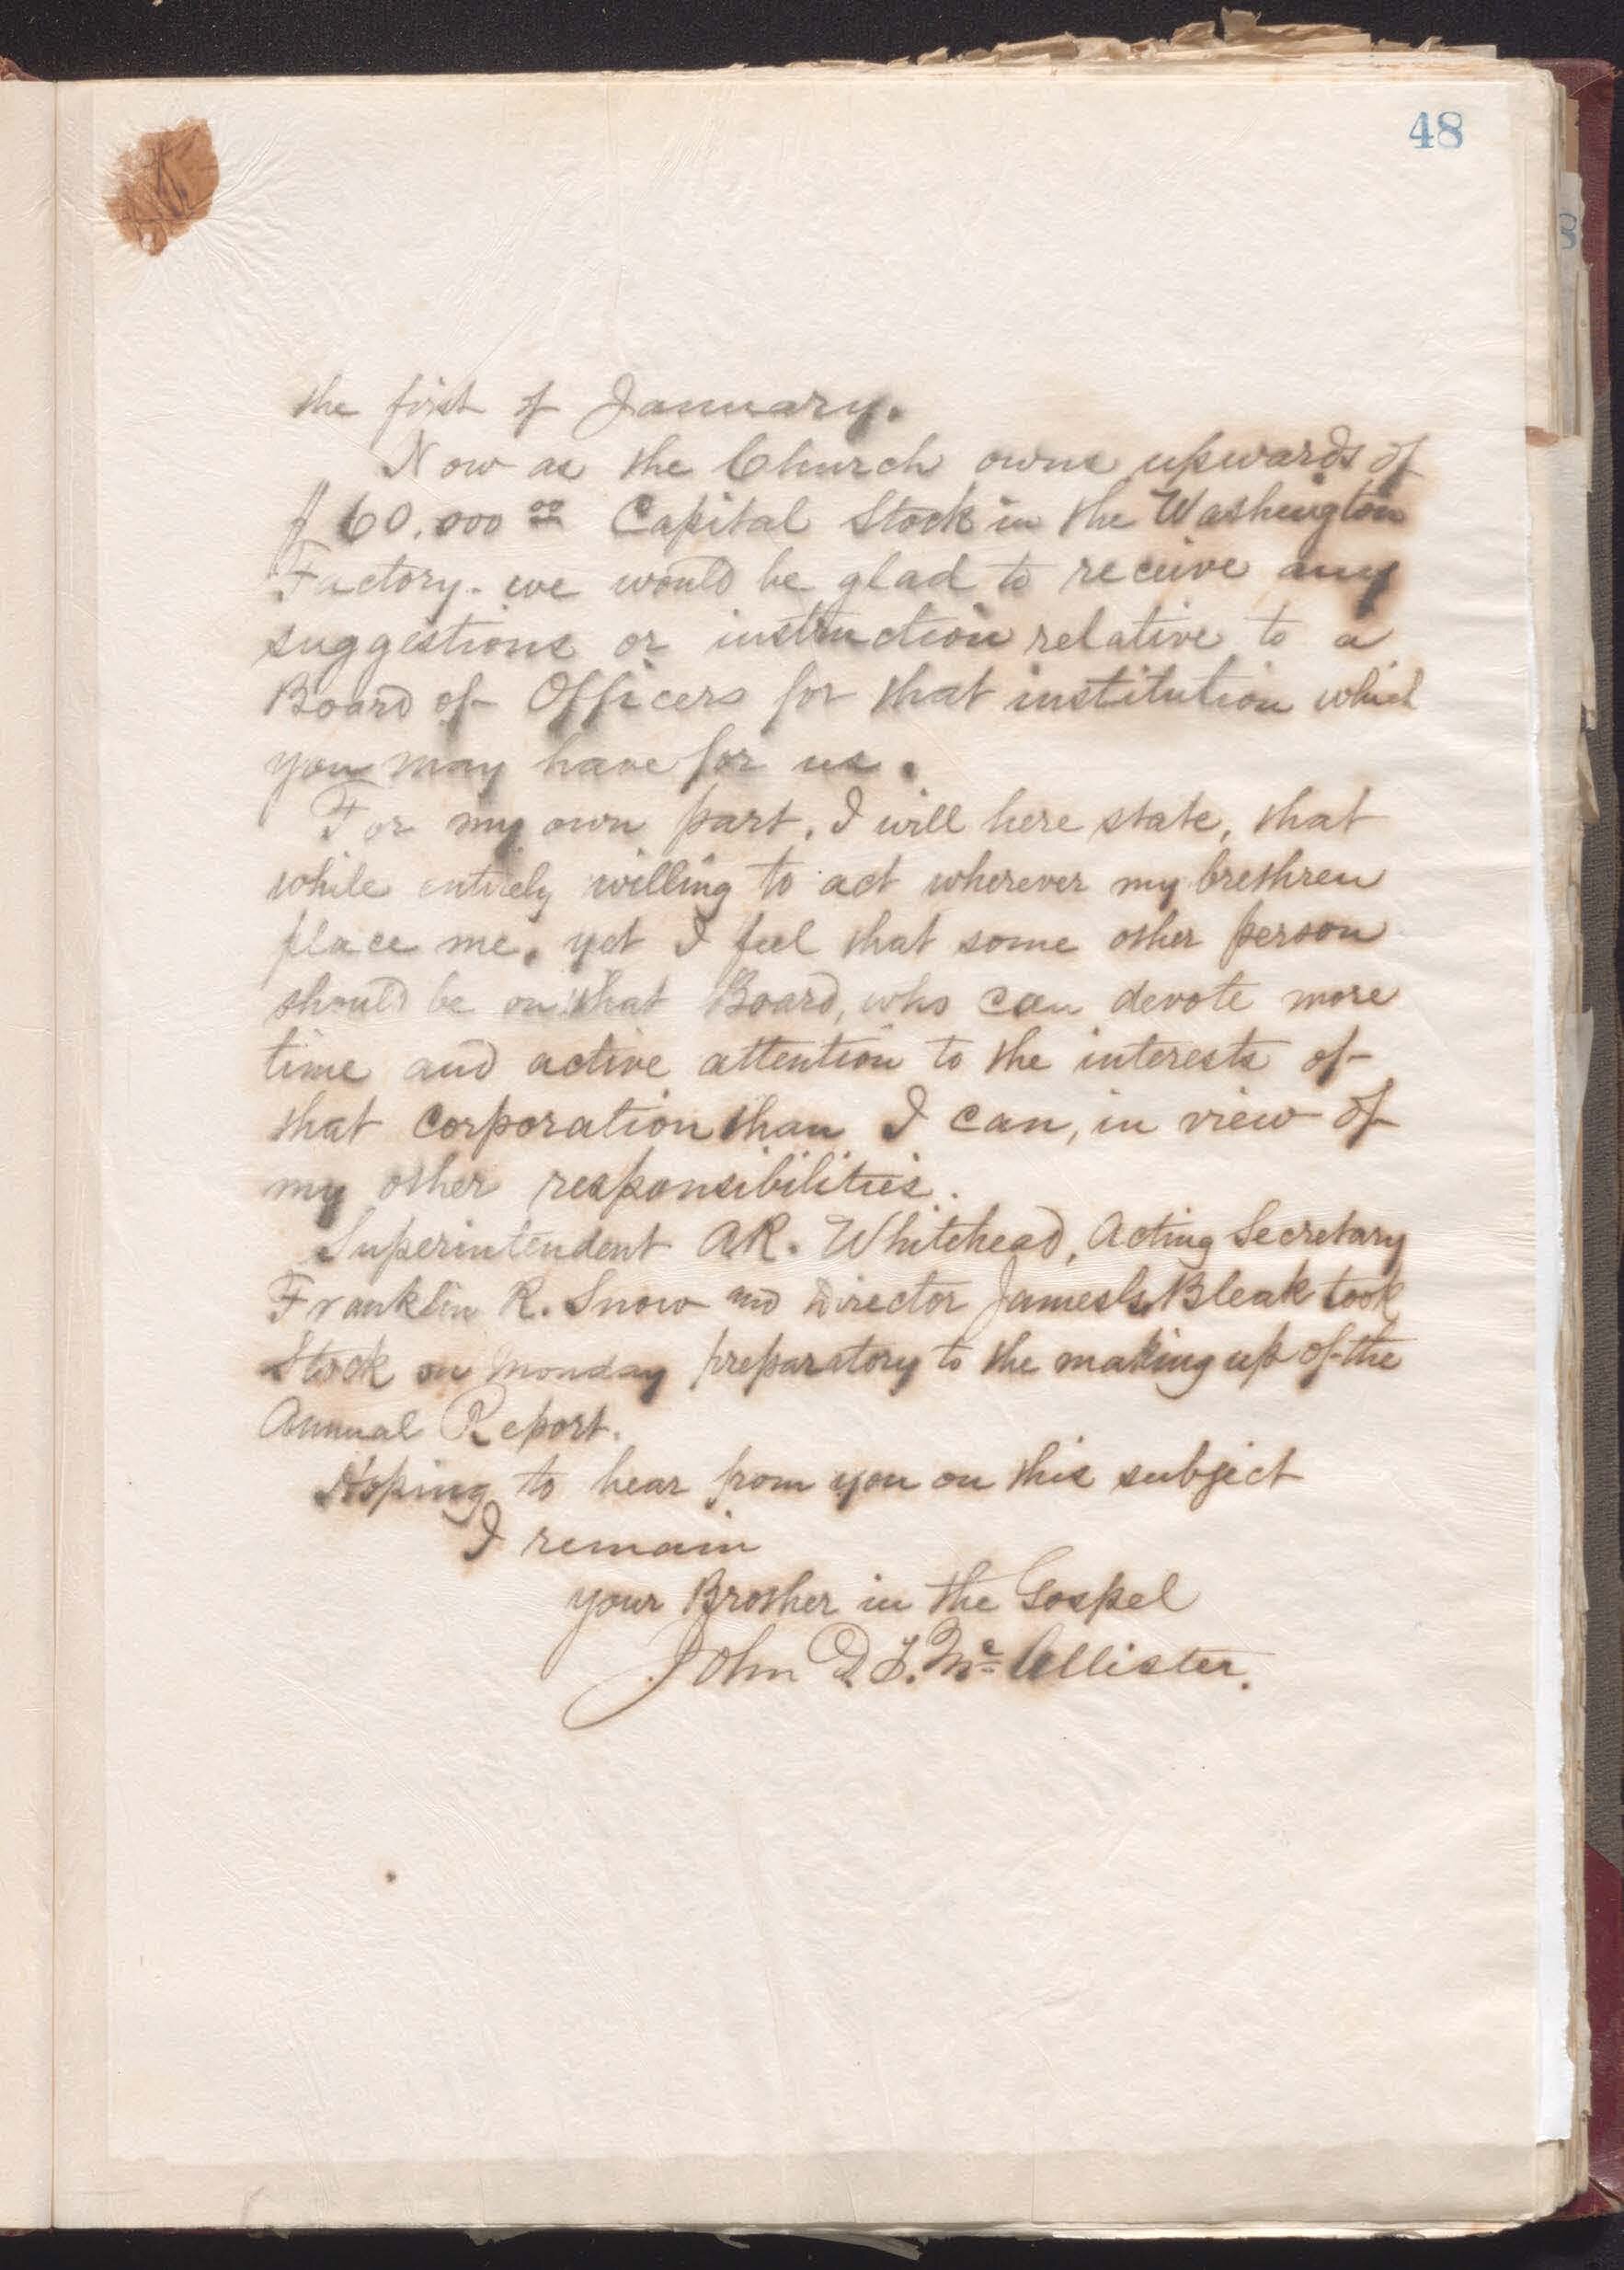 48
the first of January.
Now as the Church owns upwards of
$60.000 00 Capital Stock in the Washington
Factory. we would be glad to receive any
suggestions or instruction relative to a
Board of Officers for that institution which
you may have for us.
For my own part, I will here state, that
while entirely willing to act wherever my brethren
place me, yet I feel that some other person
should be on that Board, who can devote more
time and active attention to the interests of
that corporation than I can, in view of
my other responsibilities.
Superintendent A R. Whitehead, Acting Secretary
Franklin R. Snow and Director James G. Bleak took
Stock on Monday preparatory to the making up of the
Annual Report.
Hoping to hear from you on this subject
I remain
your Brother in the Gospel
John D. T. McAllister.